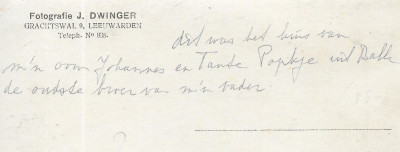 Fotografie J. DWINGER
GRACHTSWAL 9, LEEUWARDEN
Teleph. No 938.
dit was het huis van
m'n oom Johannes en Tante Popkje uit Balk
de oudste broer van m'n vader